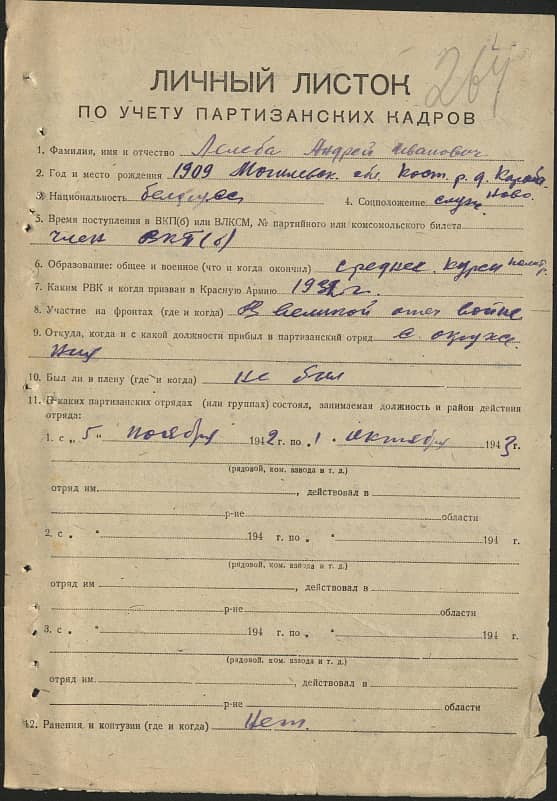 264
ЛИЧНЫЙ ЛИСТОК
ПО УЧЕТУ ПАРТИЗАНСКИХ КАДРОВ
1. Фамилия, имя и отчество Андрей Иванович
2. Год и место рождения 1909 Могилевск. обл. Кост. р. д.
3. Национальность белорус 4. Соцположение служ.
5. Время поступления в ВКП(б) или ВЛКСМ, № партийного или комсомольского билета
член ВКП(б)
6. Образование: общее и военное (что и когда окончил) среднее курсы полит
7. Каким РВК и когда призван в Красную Армию г.
8. Участие на фронтах (где и когда) В великой отеч войне
9. Откуда, когда и с какой должности прибыл и партизанский отряд с окруже
ния
10. Был ли в плену (где и когда) не был
11. В каких партизанских отрядах (или группах) состоял, занимаемая должность и район действия
отряда:
1. с „ 5 " ноября 1942 г. по „ 1 . октября 1943 г.
(рядовой, ком. взвода и т. д.)
отряд им. , действовал в
р-не области
2. с „ " 194 г. по „ " 194 г.
(рядовой, ком. взвода и т. д.)
отряд им , действовал в
р-не области
3. с „ " 194 г. по „ " 194 г.
(рядовой, ком. взвода и т. д.)
отряд им. , действовал в
р-не области
12. Ранения и контузии (где и когда) Нет.